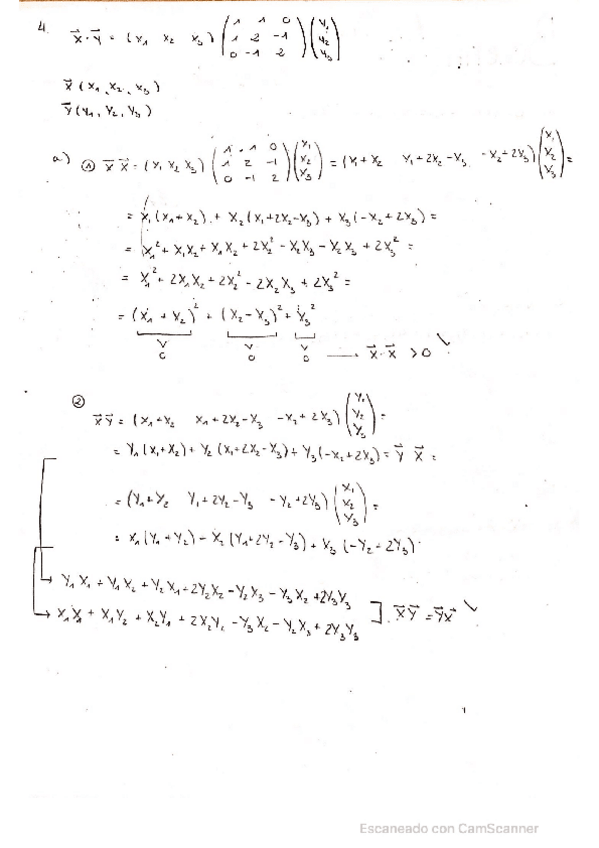 4. x⃗·y⃗ = (x₁ x₂ x₃) (1 1 0; 1 2 -1; 0 -1 2) (y₁; y₂; y₃)
x⃗ (x₁, x₂, x₃)
y⃗ (y₁, y₂, y₃)
a) ① x⃗ x⃗ = (x₁ x₂ x₃) (1 -1 0; 1 2 -1; 0 -1 2) (x₁; x₂; x₃) = (x₁+x₂ x₁+2x₂-x₃ -x₂+2x₃) (x₁; x₂; x₃) =
= x₁(x₁+x₂) + x₂(x₁+2x₂-x₃) + x₃(-x₂+2x₃) =
= x₁² + x₁x₂ + x₁x₂ + 2x₂² - x₂x₃ - x₂x₃ + 2x₃² =
= x₁² + 2x₁x₂ + 2x₂² - 2x₂x₃ + 2x₃² =
= (x₁ + x₂)² + (x₂-x₃)² + x₃²
v v v
0 0 0 — x⃗·x⃗ > 0 ✓
②
x⃗ y⃗ = (x₁+x₂ x₁+2x₂-x₃ -x₂+2x₃) (y₁; y₂; y₃) =
= y₁(x₁+x₂) + y₂(x₁+2x₂-x₃) + y₃(-x₂+2x₃) = y⃗ x⃗ =
= (y₁+y₂ y₁+2y₂-y₃ -y₂+2y₃) (x₁; x₂; x₃) =
= x₁(y₁+y₂) - x₂(y₁+2y₂-y₃) + x₃(-y₂+2y₃)
→ y₁x₁ + y₁x₂ + y₂x₁ + 2y₂x₂ - y₂x₃ - y₃x₂ + 2y₃y₃
→ x₁x₁ + x₁y₂ + x₂y₁ + 2x₂y₂ - y₃x₂ - y₂x₃ + 2y₃y₃ ] x⃗y⃗ = y⃗x⃗ ✓
Escaneado con CamScanner